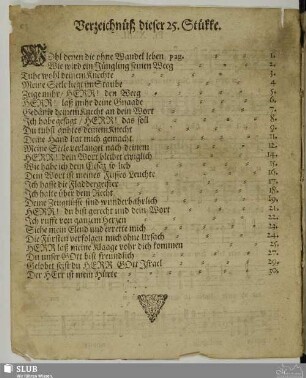 Verzeichnüß dieser 25. Stükke.
Wohl denen die ohne Wandel leben pag. 1.
Wie wird ein Jüngling seinen Weeg 2.
Tuhe wohl deinem Knechte
Meine Seele liegt im Staube
Zeige mihr / HERR / den Weeg
HERR / laß mihr deine Gnaade
Gedänke deinem Knecht an dein Wort
Ich habe gesagt / HERR / das soll
Du tuhst guhtes deinem Knecht
Deine Hand hat mich gemacht
Meine Seele verlanget nach deinem
HERR / dein Wort bleibet ewiglich
Wie habe ich dein Gesäz so lieb
Dein Wort ist meines Fusses Leuchte
Ich hasse die Fladdergeister
Ich halte über dem Recht
Deine Zeugnüsse sind wunderbahrlich
HERR / du bist gerecht und dein Wort
Ich ruffe von ganzem Herzen
Siehe mein Elend und errette mich
Die Fürsten verfolgen mich ohne Ursach
HERR laß meine Klaage vohr dich kommen
Du unser GOtt bist freundlich 27.
Gelobet seist du HERR GOtt Israel 29.
Der HErr ist mein Hürte 30.
SLUB
Wir führen Wissen.